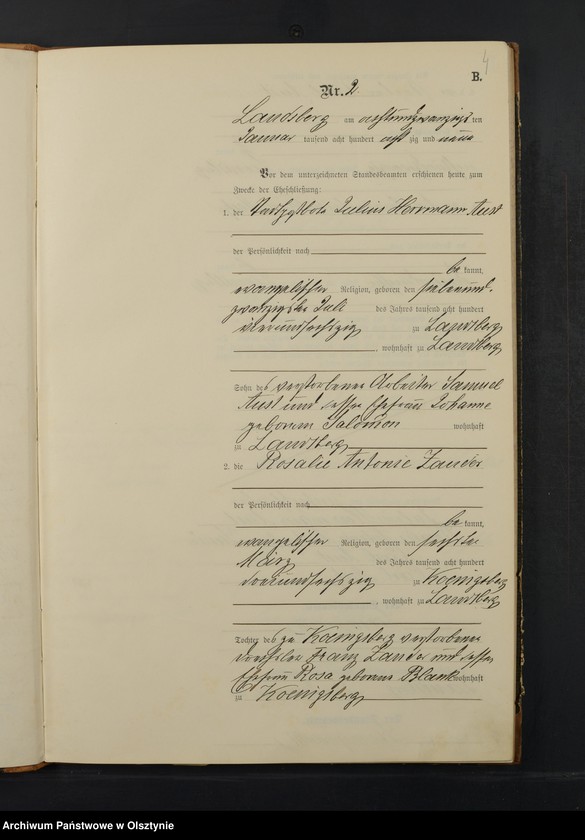 4
B.
Nr. 2.
Landsberg am achtundzwanzigsten
Januar tausend acht hundert achtzig und neun
Vor dem unterzeichneten Standesbeamten erschienen heute zum
Zwecke der Eheschließung:
1. der Julius Herrmann Aust
der Persönlichkeit nach
be kannt,
evangelischer Religion, geboren den siebenund-
zwanzigsten Juli des Jahres tausend acht hundert
vierundsechszig zu Landsberg
, wohnhaft zu Landsberg
Sohn des verstorbenen Arbeiter Samuel
Aust und dessen Ehefrau Johanne
geborenen Salomon wohnhaft
zu Landsberg
2. die Rosalie Antonie Zander
der Persönlichkeit nach
be kannt,
evangelischer Religion, geboren den sechsten
März des Jahres tausend acht hundert
dreiundsechszig zu Koenigsberg
, wohnhaft zu Landsberg
Tochter des zu Koenigsberg verstorbenen
Franz Zander und dessen
Ehefrau Rosa geborene Blank wohnhaft
zu Koenigsberg
Archiwum Państwowe w Olsztynie